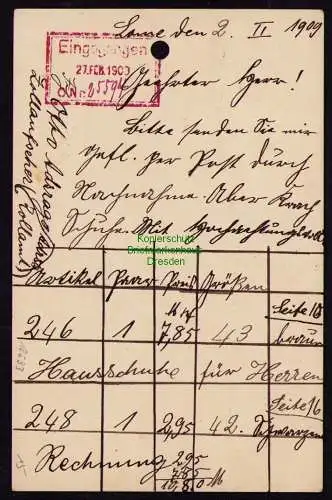 den 2. II 1909
Eingegangen
27. FEB. 1909
Geehrter Herr!
Bitte senden Sie mir
gefl. per Post durch
Nachnahme. Aber
Schuhe. Mit Hochachtungsvoll
Otto
Zollaufseher (Zollamt)
Kopierschutz
Briefmarkenhaus
Dresden
Artikel Paar Preis Größen
M
246 1 7,85 43 Seite 18 braun
Hausschuhe für Herren
248 1 2,95 42. Seite 16 Schwarzen
Rechnung 2,95
7,85
10,80 M